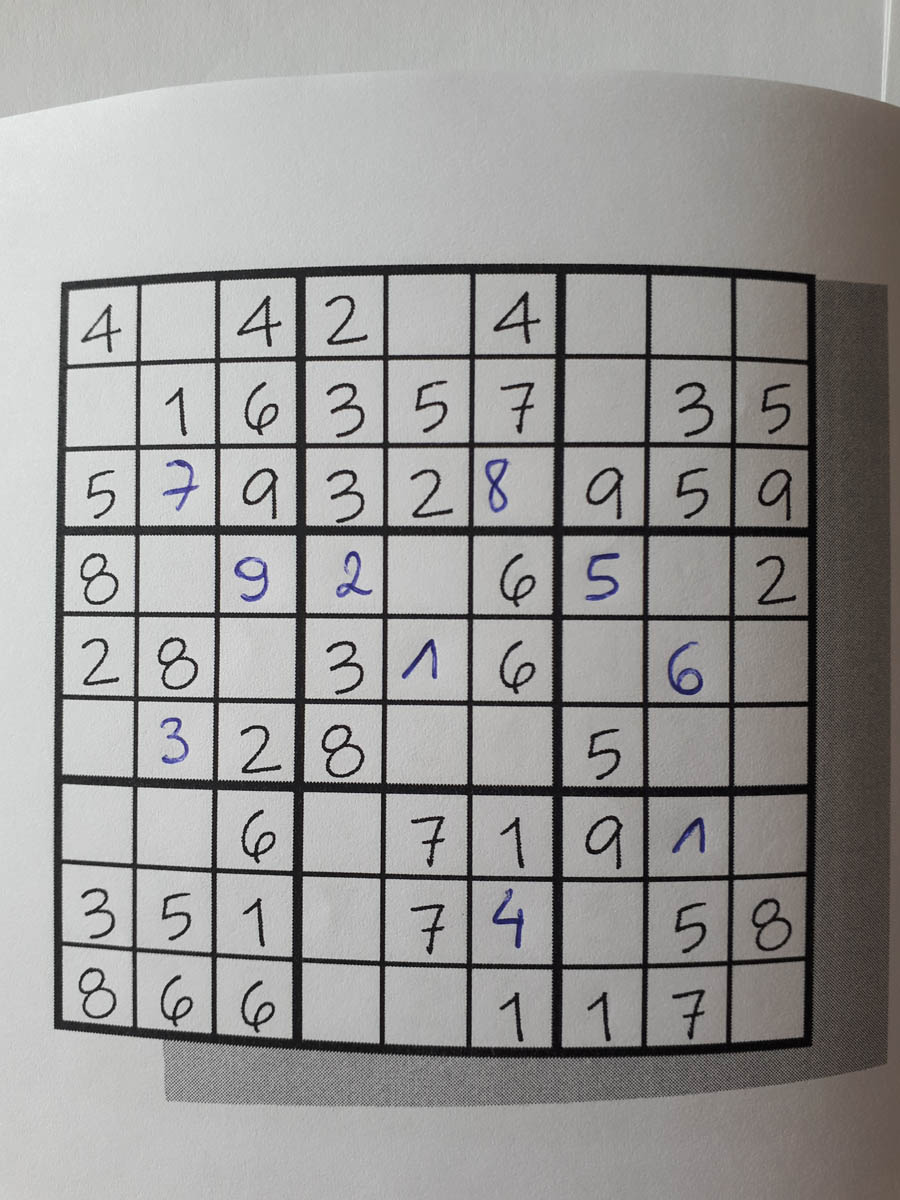 4 4 2 4
1 6 3 5 7 3 5
5 7 9 3 2 8 9 5 9
8 9 2 6 5 2
2 8 3 1 6 6
3 2 8 5
6 7 1 9 1
3 5 1 7 4 5 8
8 6 6 1 1 7